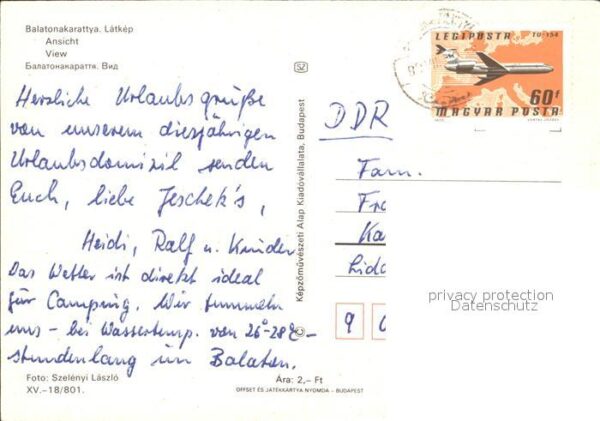 Balatonakarattya. Látkép
Ansicht
View
Балатонакараття. Вид
Herzliche Urlaubsgrüße
von unserem diesjährigen
Urlaubsdomizil senden
Euch, liebe Jeschek's,
Heidi, Ralf u. Kinder
Das Wetter ist direkt ideal
für Camping. Wir tummeln
uns – bei Wassertemp. von 26°-28°C –
stundenlang im Balaton.
Foto: Szelényi László
XV.–18/801.
Ára: 2,– Ft
OFFSET ÉS JÁTÉKKÁRTYA NYOMDA – BUDAPEST
Képzőművészeti Alap Kiadóvállalata, Budapest
SZ
LÉGIPOSTA TU-154
60f
MAGYAR POSTA
DDR
Fam.
Fra
Ka
Lido
9
privacy protection
Datenschutz